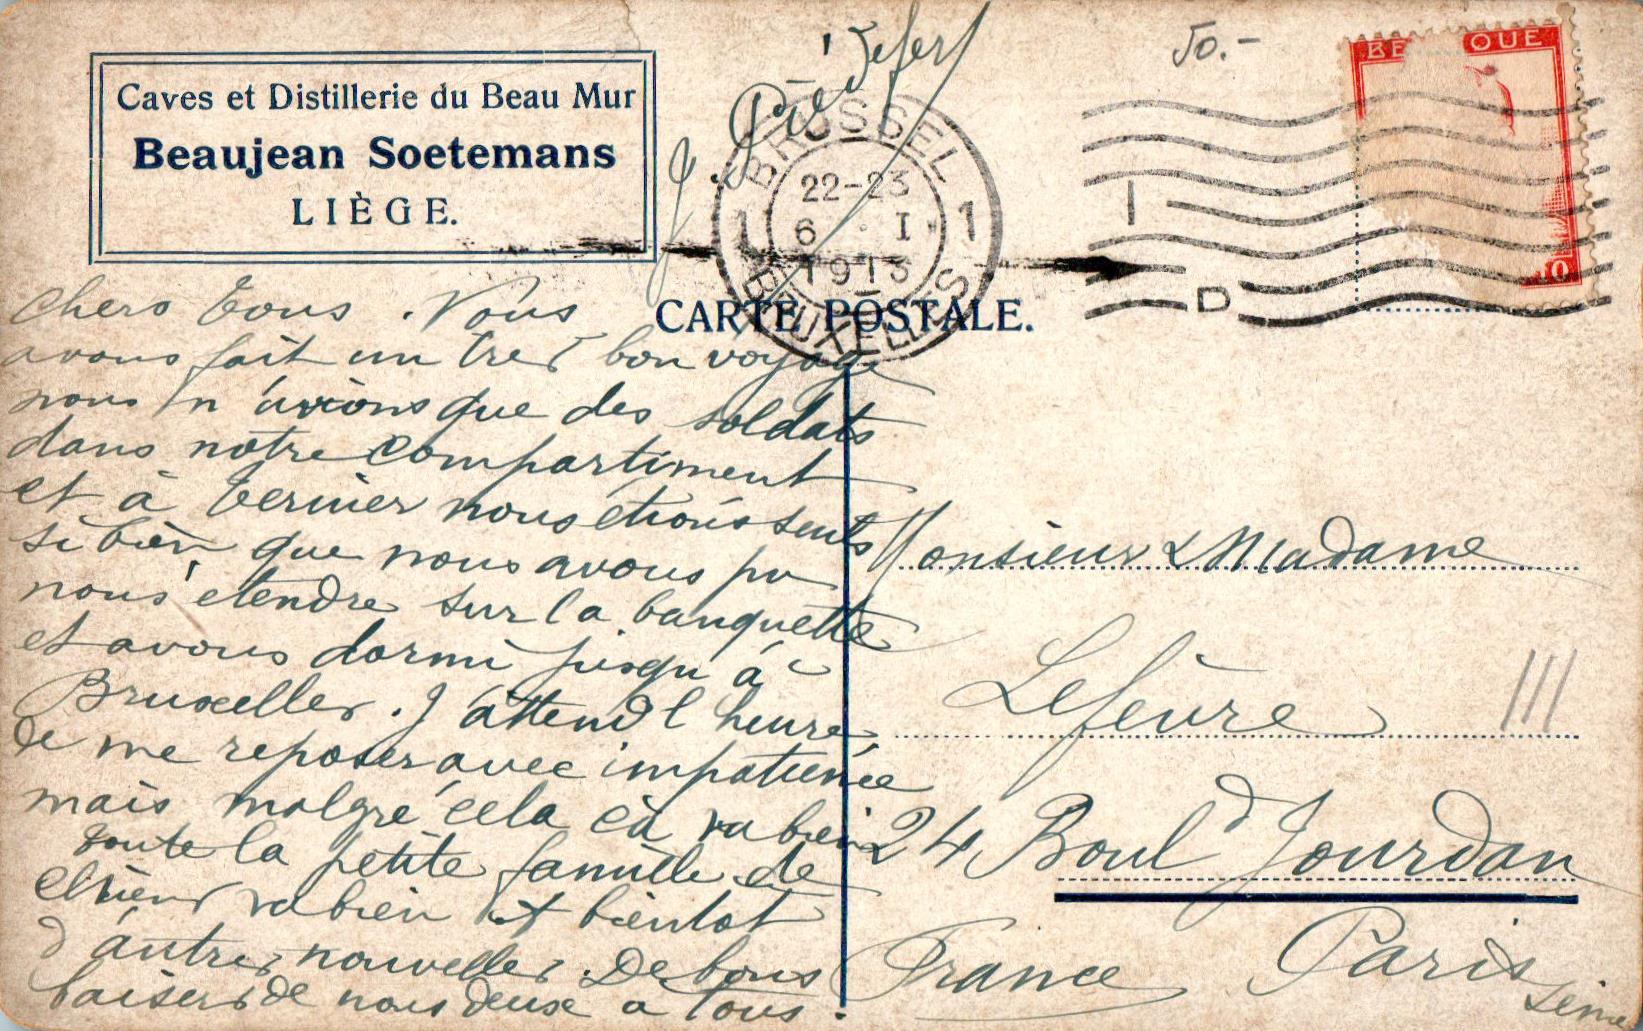 Caves et Distillerie du Beau Mur
Beaujean Soetemans
LIÈGE.
50.-
BRUSSEL
22-23
1 6 · I 1
1913
BRUXELLES
CARTE POSTALE.
BE QUE
10
D
chers tous . Nous
avons fait un tres bon voyage
nous n'avions que des soldats
dans notre compartiment
et à ternier nous etions seuls
si bien que nous avons pu
nous etendre sur la banquette
et avons dormi jusqu'à
Bruxelles. J'attend l'heure
de me reposer avec impatience
mais malgré cela ca va bien
toute la petite famille de
chiens va bien et bientot
d'autres nouvelles. De bons
baisers de nous deux a tous.
Monsieur & Madame
Lefèvre
24 Boul d Jourdan
Paris
France
Seine